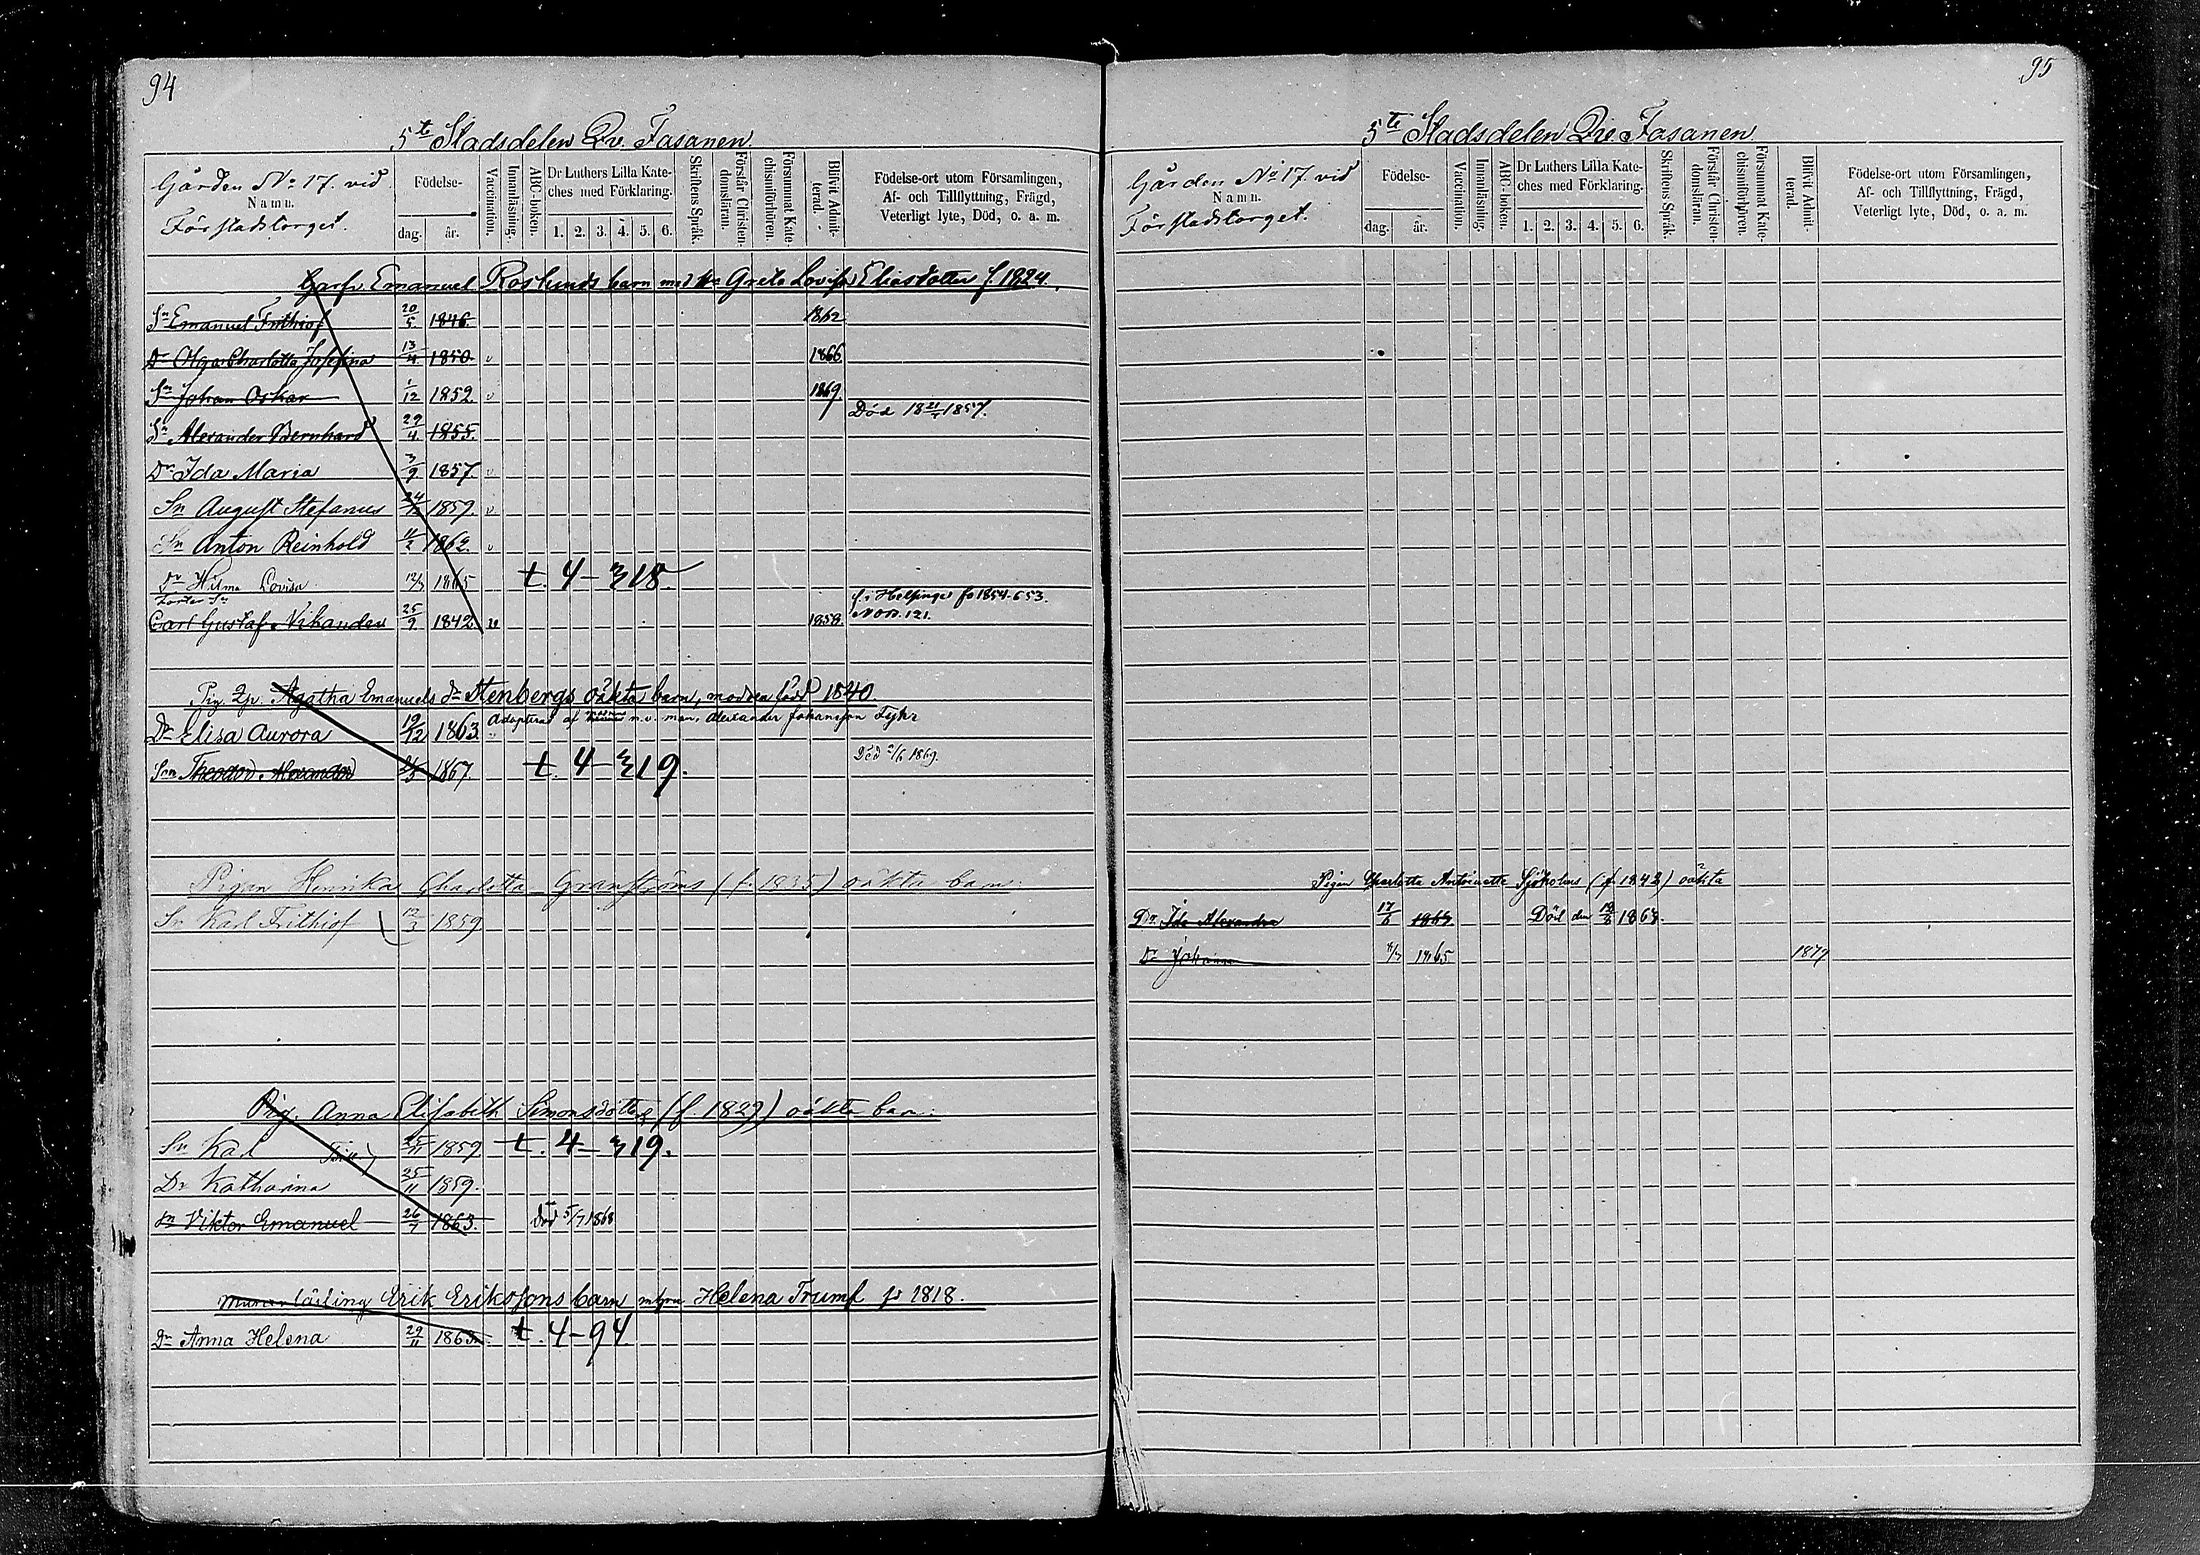 94
5te Stadsdelen Qv. Fasanen
Gården No 17. vid
Namn.
Förstadstorget.
Födelse-
dag. år.
Vaccination.
Innanläsning.
ABC-boken.
Dr Luthers Lilla Kate-
ches med Förklaring.
1. 2. 3. 4. 5. 6.
Skriftens Språk.
Förstår Christen-
domsläran.
Försummat Kate-
chismiförhören.
Blifvit Admit-
terad.
Födelse-ort utom Församlingen,
Af- och Tillflyttning, Frägd,
Veterligt lyte, Död, o. a. m.
Garfv Emanuel Roslunds barn med Greta Lovisa Eliasdotter f. 1824.
Sn Emanuel Frithiof 20/5 1846. 1862
Dr Olga Charlotta Josefina 13/4 1850. v 1866
Sn Johan Oskar 1/12 1852. v 1869.
Död 1857.
Sn Alexander Bernhard 29/4 1855.
Dr Ida Maria 3/9 1857 v
Sn August Stefanus 24/12 1859. v
Sn Anton Reinhold 11/2 1862. v
Dr Hilma Lovisa 12/3 1865 t. 4-318
Foster Sn f. i Helsinge fs 1854. 653.
Carl Gustaf Vikander 25/9 1842 v 1858. No 121.
Pig. Agatha Emanuels dr Stenbergs oäkta barn, modren född 1840
Adopterat af n.v. man, Alexander Johansson Fyhr
Dr Elisa Aurora 19/12 1863
Son Theodor Alexander 1867. t. 4-319. Död 2/6 1869.
Pigan Henrika Charlotta Granströms (f. 1835) oäkta barn:
Sn Karl Frithiof 12/3 1859
Pig. Anna Elisabeth Simonsdotter (f. 1829) oäkta barn:
Sn Karl 25/11 1859 t. 4-319.
Dr Katharina 25/11 1859.
Sn Viktor Emanuel 26/7 1863. Död 5/7 1868
Murarlärling Erik Erikssons barn Helena Trumf fs 1818.
Dr Anna Helena 29/11 1863. t. 4-94.
95
5te Stadsdelen Qv. Fasanen
Gården No 17. vid
Namn.
Förstadstorget.
Födelse-
dag. år.
Vaccination.
Innanläsning.
ABC-boken.
Dr Luthers Lilla Kate-
ches med Förklaring.
1. 2. 3. 4. 5. 6.
Skriftens Språk.
Förstår Christen-
domsläran.
Försummat Kate-
chismiförhören.
Blifvit Admit-
terad.
Födelse-ort utom Församlingen,
Af- och Tillflyttning, Frägd,
Veterligt lyte, Död, o. a. m.
Pigan Charlotta Antoinette Sjöholms (f. 1843) oäkta
Dr. Ida Alexandra 17/6 Död den 1868.
Dr Johanna 8/3 1865 1879